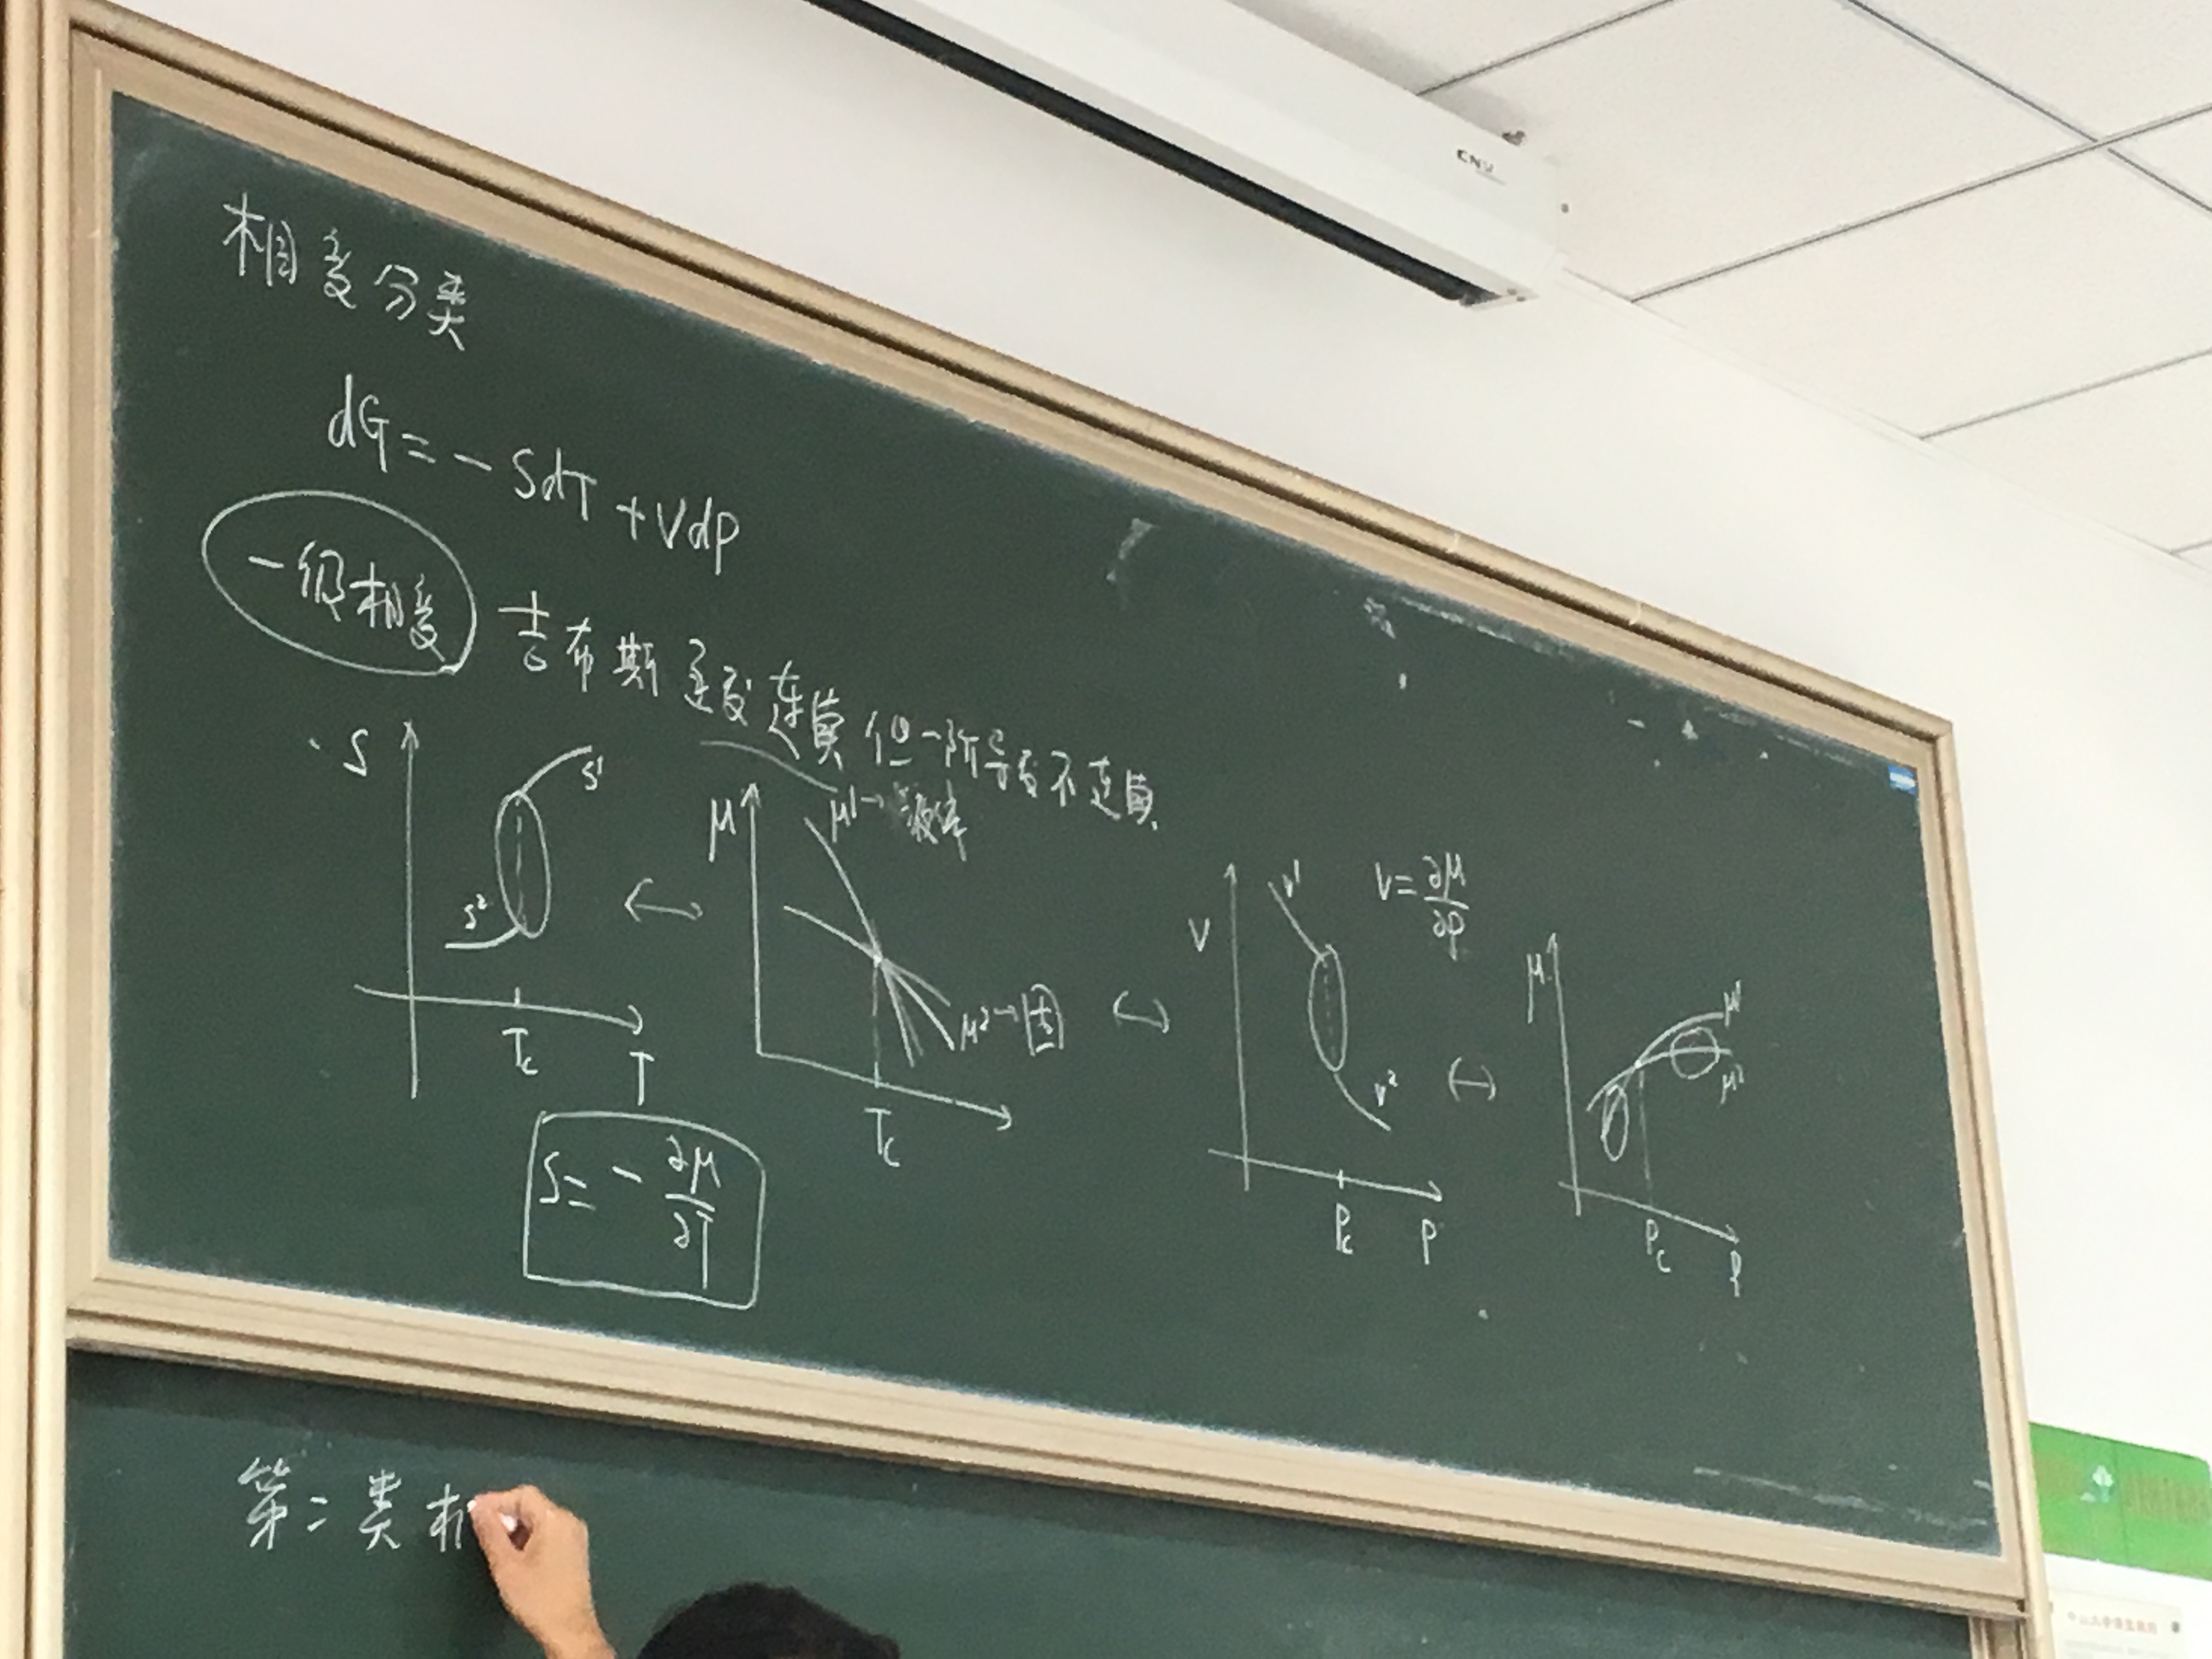 CNV
相变分类
dG = - SdT + Vdp
一级相变 吉布斯函数连续但一阶导数不连续
S S¹ S² Tc T
μ μ¹→液体 μ²→固 Tc
S = - ∂μ/∂T
V V¹ V² Pc P
V = ∂μ/∂P
μ μ¹ μ² Pc P
第二类相